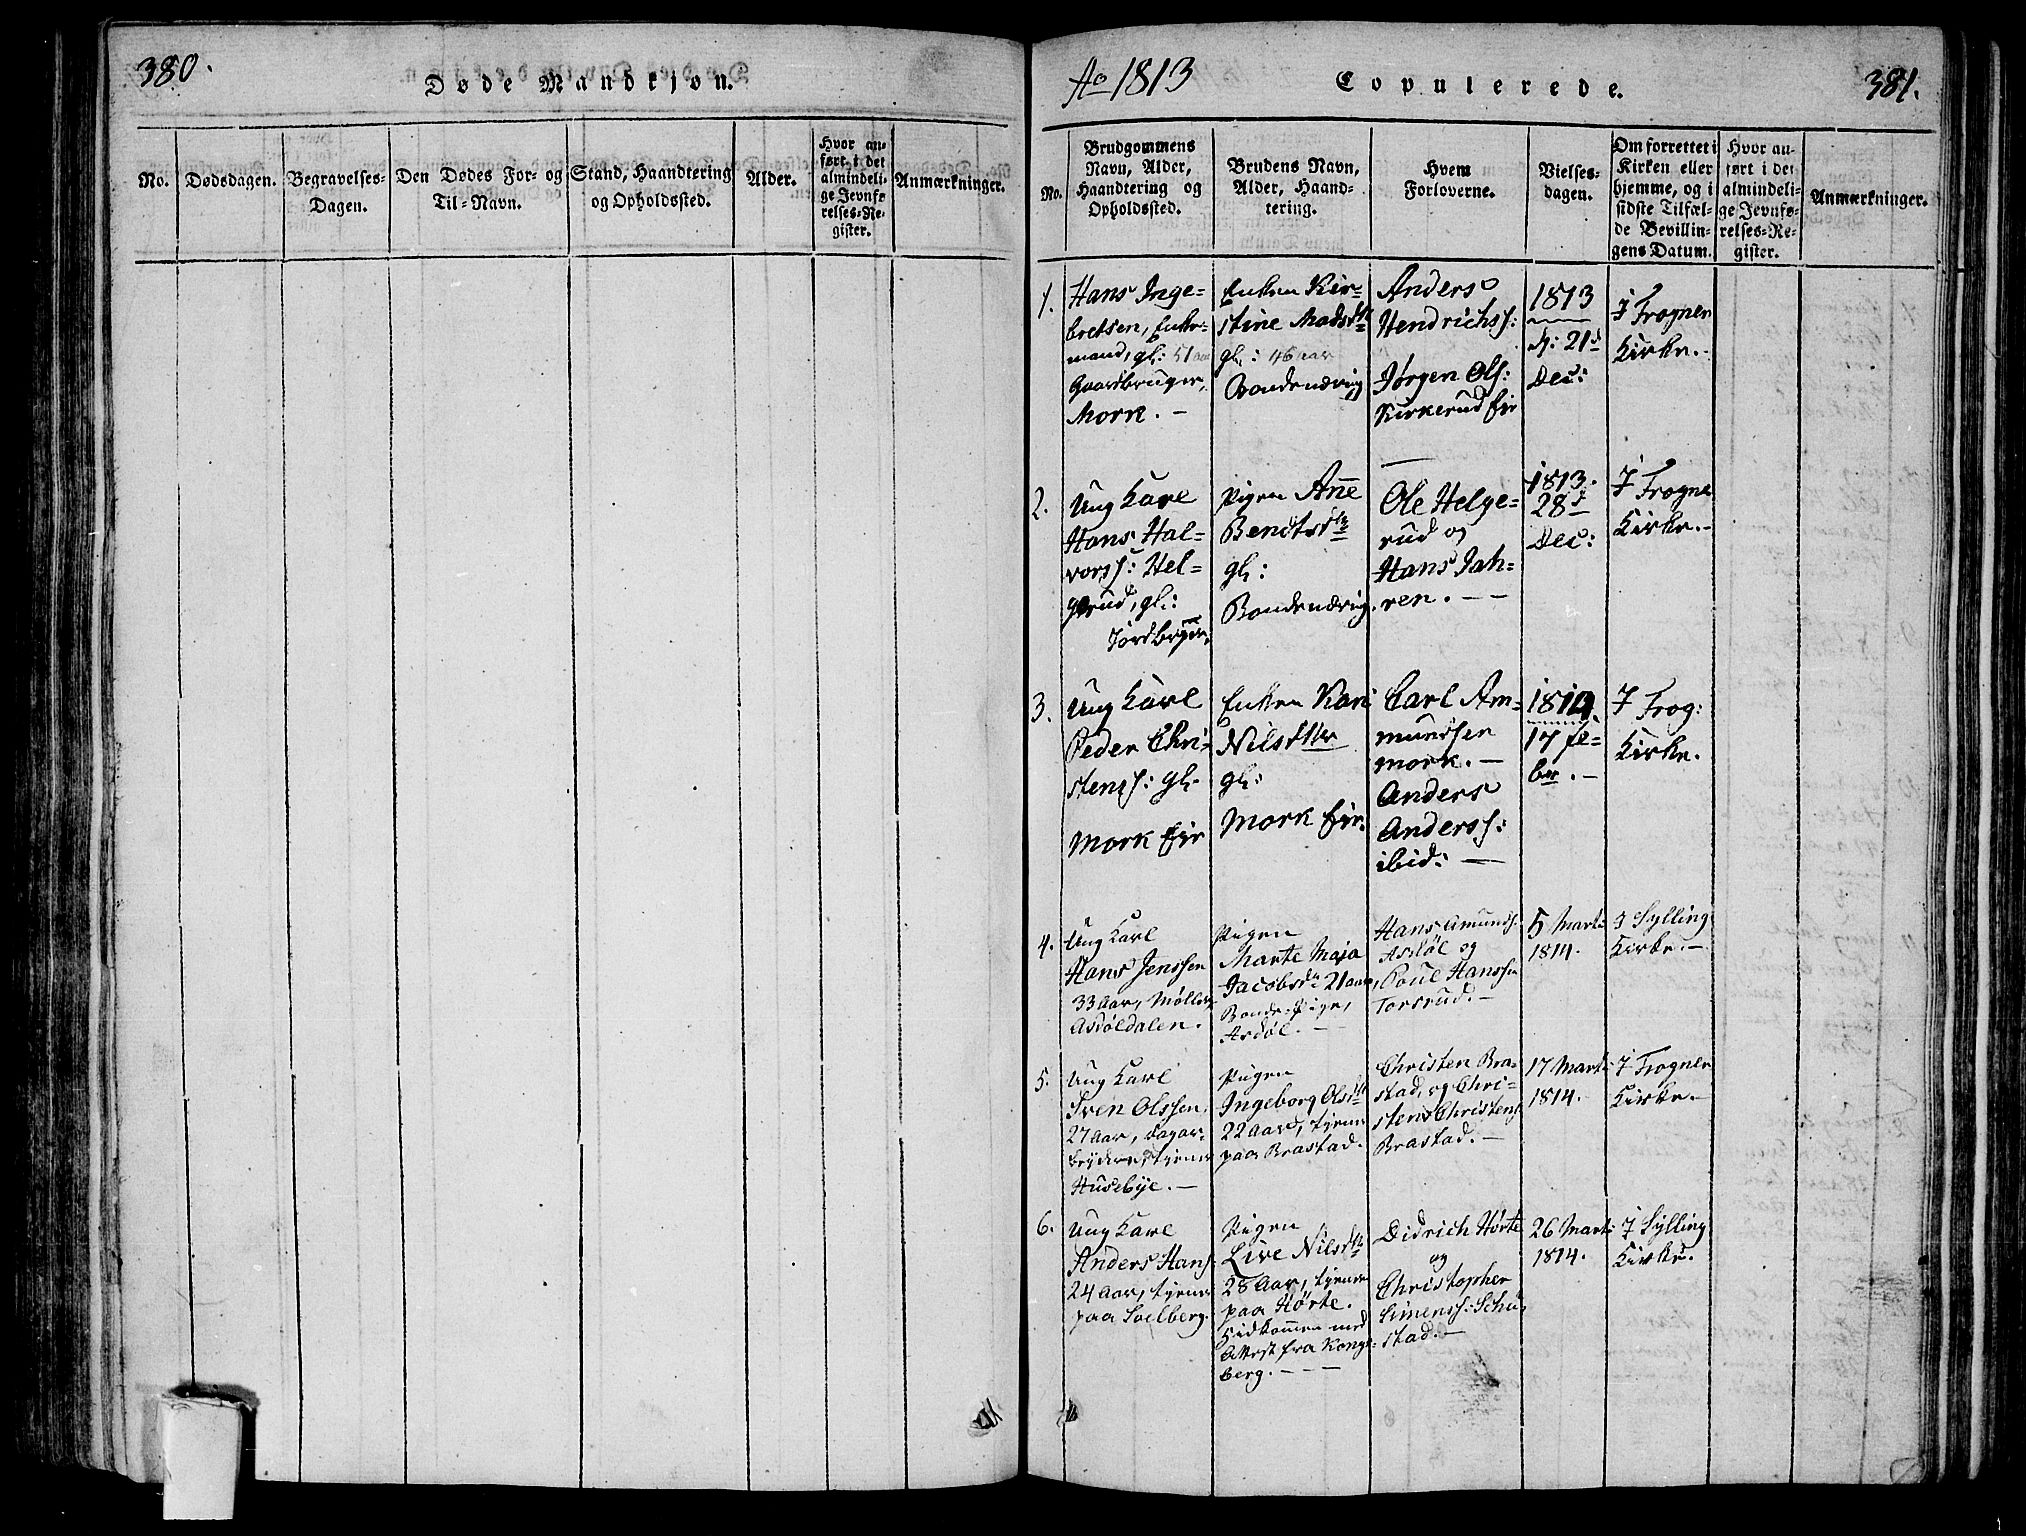 380.
Døde Mandkjøn.
No.
Dødsdagen.
Begravelses-
Dagen.
Den Dødes For- og
Til-Navn.
Stand, Haandtering
og Opholdssted.
Alder.
Hvor an-
ført i det
almindeli-
ge Jevnfø-
relses-Re-
gister.
Anmærkninger.
Ao 1813
Copulerede.
381.
No.
Brudgommens
Navn, Alder,
Haandtering og
Opholdssted.
Brudens Navn,
Alder, Haand-
tering.
Hvem
Forloverne.
Vielses-
dagen.
Om forrettet i
Kirken eller
hjemme, og i
sidste Tilfæl-
de Bevillin-
gens Datum.
Hvor an-
ført i det
almindeli-
ge Jevnfø-
relses-Re-
gister.
Anmærkninger.
1.
Hans Inge-
bretsen, Enke-
mand, gl: 51 aar
Gaardbruger,
Mork. -
Enken Kir-
stine Madsdtr
gl: 46 aar
Bondenæring
Anders
Hendrichss:
Jørgen Ols:
Kirkerud eir
1813
d: 21d
Dec:
I Frogner
Kirke. -
2.
Ung Karl
Hans Hal-
vorss: Hel-
gerud, gl:
Jordbruger.
Pigen Ane
Bendtsdtr
gl:
Bondenæring.
Ole Helge-
rud og
Hans Jah-
ren. - -
1813.
28d
Dec:
I Frogne
Kirke. -
3.
Ung Karl
Peder Chri-
stens: gl.
Mork eir
Enken Kari
Nilsdtter
gl:
Mork eir.
Carl Am-
mundsen
Mork. -
Anders
Anderss:
ibid: -
1814.
17 Fe-
br. -
I Frog:
Kirke.
4.
Ung Karl
Hans Jenssen
33 Aar, Møller,
Asdøldalen.
Pigen
Marte Maja
Jacobsdr 21 aar,
Bonde-Pige,
Asdøl. -
Hans Amunds.
Asdøl og
Poul Hanssen
Torsrud. -
5 Marti
1814.
I Sylling
Kirke. -
5.
Ung Karl
Sven Olssen,
27 Aar, Dagar-
beyder, tjener
Husebye. -
Pigen
Ingeborg Olsdtr
22 Aar, tjener
paa Brastad.
Christen Bra-
stad, og Chri-
sten Christens
Brastad. -
17 Marti
1814.
I Frogner
Kirke. -
6.
Ung Karl
Anders Hans:
24 Aar, tjener
paa Solberg.
Pigen
Live Nilsdtr
28 Aar, tjener
paa Hørte.
Hidkommen med
Attest fra Kongs-
berg. - - -
Didrich Hørte
og
Christopher
Simenss: Schu-
stad. -
26 Marti
1814.
I Sylling
Kirke.